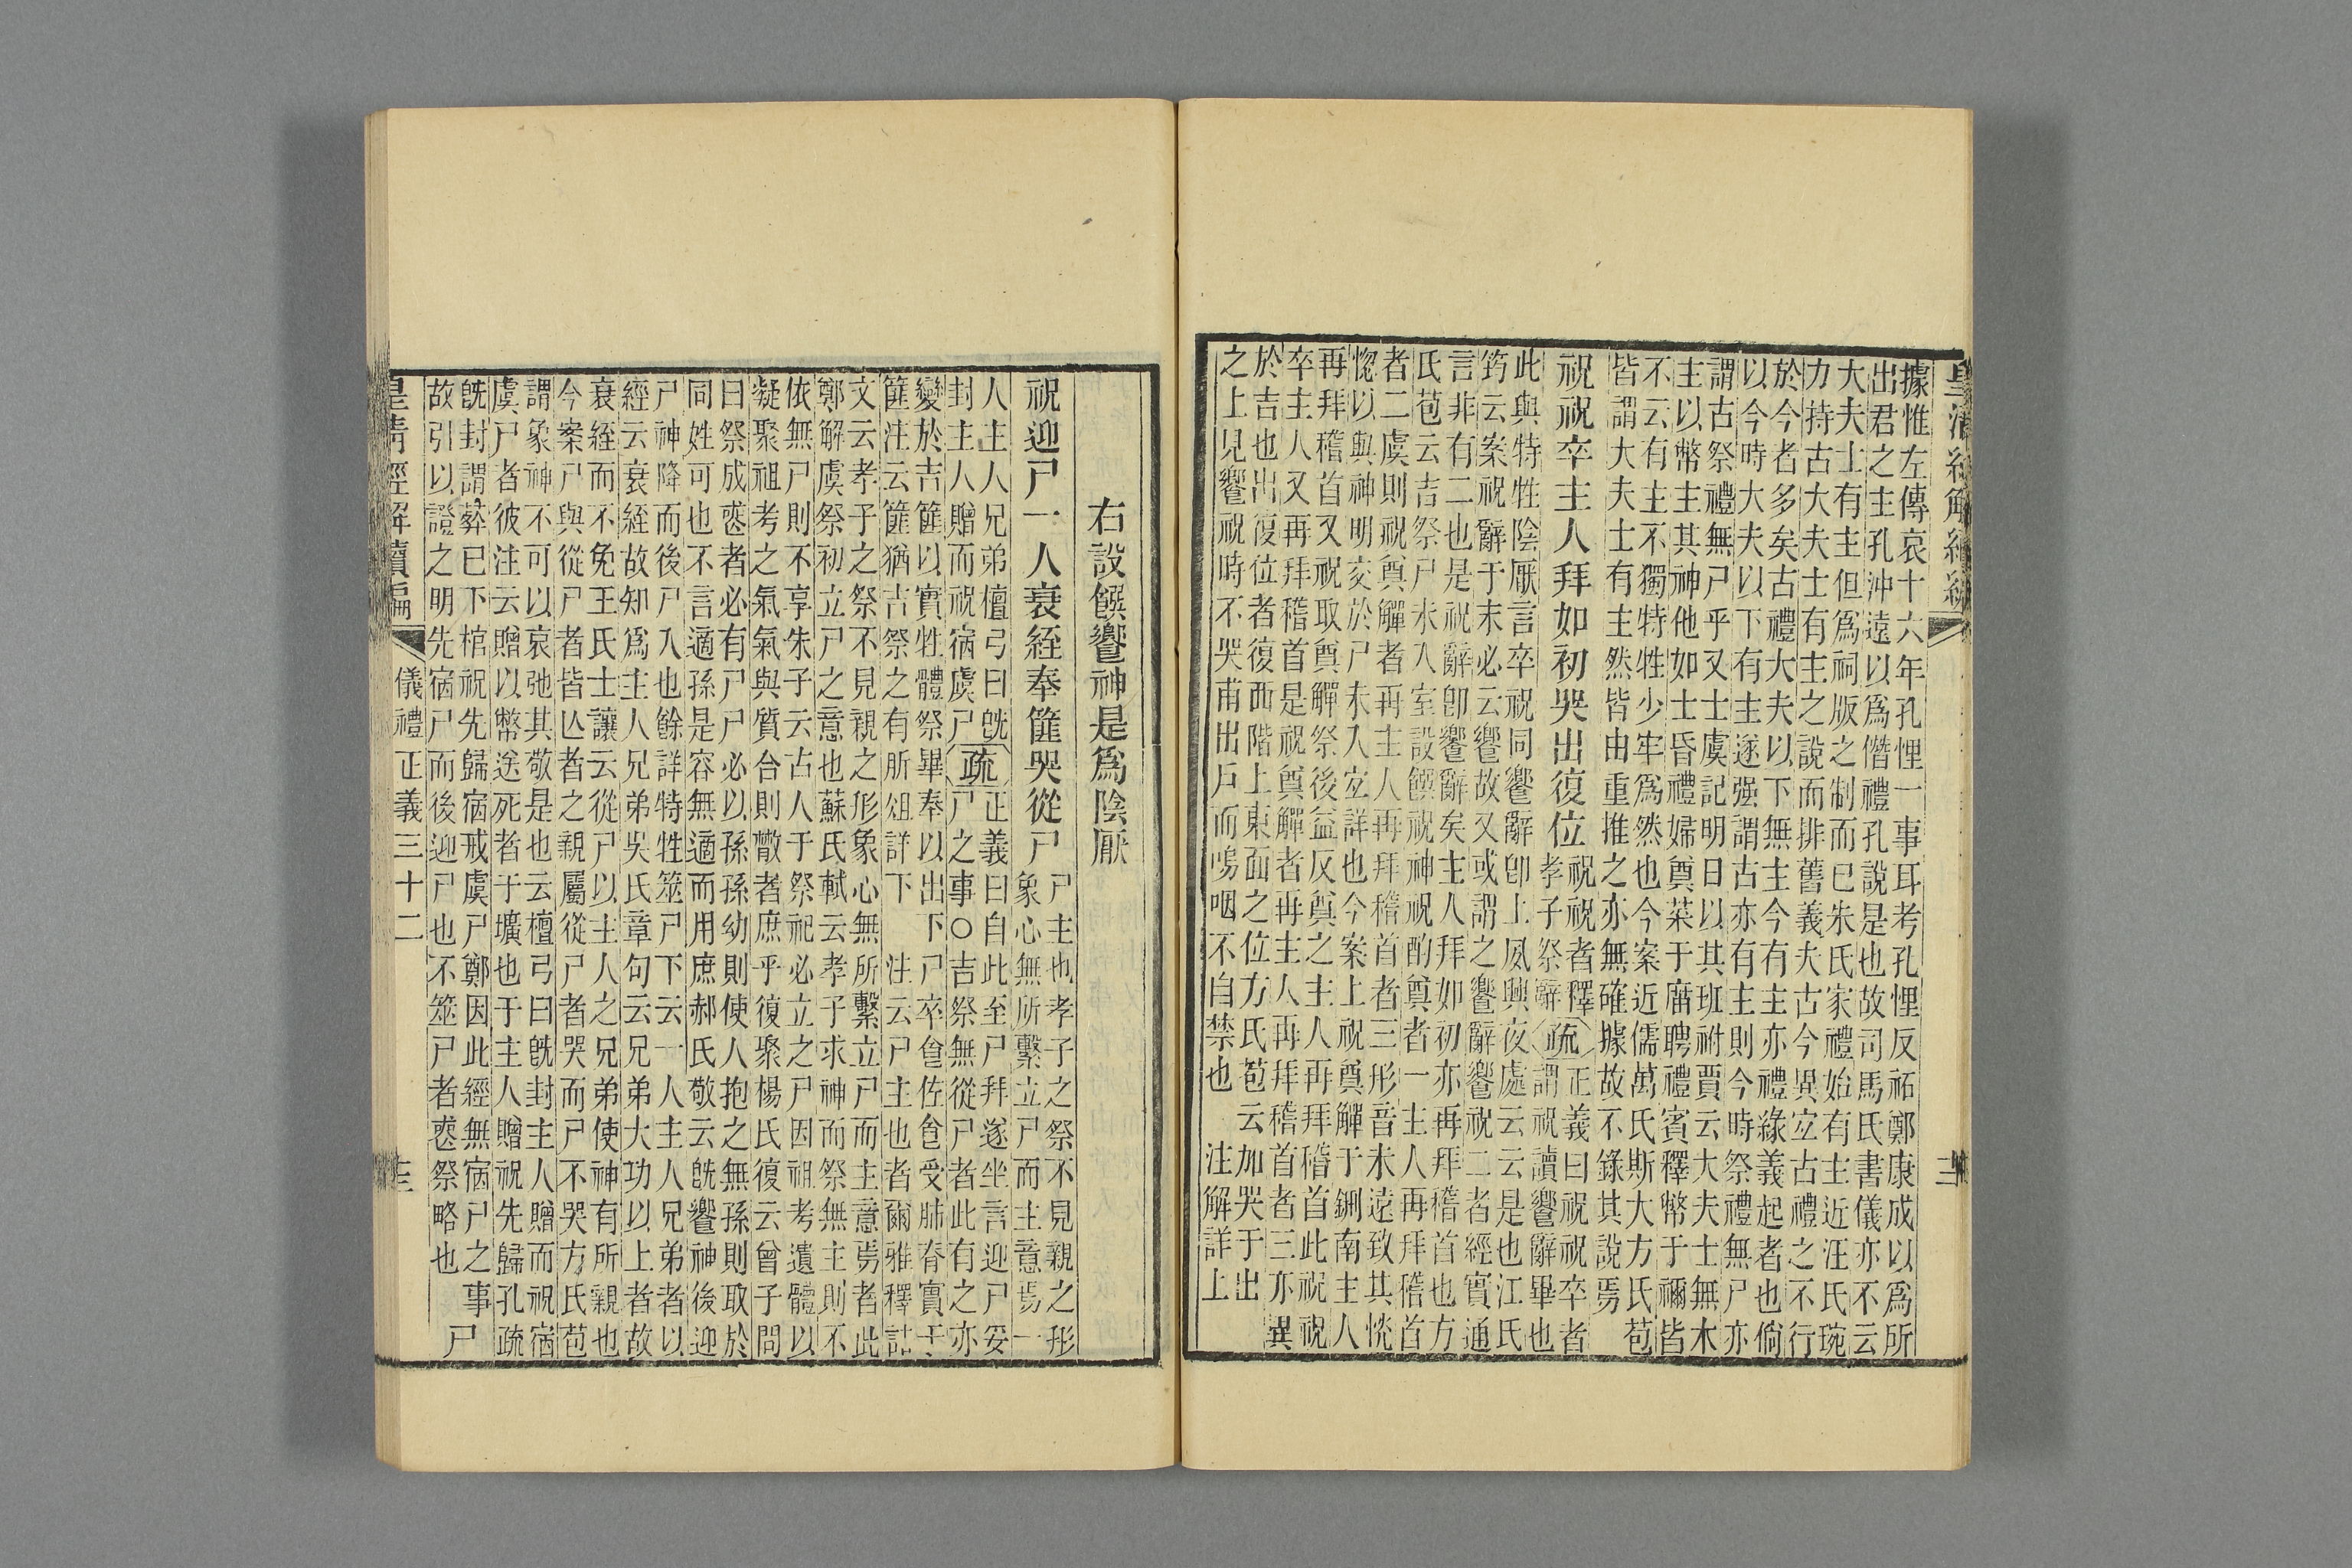 皇清經解續編
據惟左傳哀十六年孔悝一事耳考孔悝反祏鄭康成以為所
出君之主孔沖遠以為僭禮孔說是也故司馬氏書儀亦不云
大夫士有主但為祠版之制而已朱氏家禮始有主近汪氏琬
力持古大夫士有主之說而排舊義夫古今異宜古禮之不行
於今者多矣古禮大夫以下無主今有主亦禮緣義起者也倘
以今時大夫以下有主遂强謂古亦有主則今時祭禮無尸亦
謂古祭禮無尸乎又士虞記明日以其班祔賈云大夫士無木
主以幣主其神他如士昏禮婦奠菜于廟聘禮賓釋幣于禰皆
不云有主不獨特牲少牢為然也今案近儒萬氏斯大方氏苞
皆謂大夫士有主然皆由重推之亦無確據故不錄其說焉
祝祝卒主人拜如初哭出復位
祝祝者釋
孝子祭辭
疏
正義曰祝祝卒者
謂祝讀饗辭畢也
此與特牲陰厭言卒祝同饗辭卽上夙興夜處云云是也江氏
筠云案祝辭于末必云饗故又或謂之饗辭饗祝二者經實通
言非有二也是祝辭卽饗辭矣主人拜如初亦再拜稽首也方
氏苞云吉祭尸未入室設饌祝神祝酌奠者一主人再拜稽首
者二虞則祝奠觶者再主人再拜稽首者三形音未遠致其恍
惚以與神明交於尸未入宜詳也今案上祝奠觶于鉶南主人
再拜稽首又祝取奠觶祭後益反奠之主人再拜稽首此祝祝
卒主人又再拜稽首是祝奠觶者再主人再拜稽首者三亦異
於吉也出復位者復西階上東面之位方氏苞云加哭于出
之上見饗祝時不哭甫出戶而嗚咽不自禁也 注解詳上
右設饌饗神是為陰厭
祝迎尸一人衰絰奉篚哭從尸
尸主也孝子之祭不見親之形
象心無所繫立尸而主意焉一
人主人兄弟檀弓曰旣
封主人贈而祝宿虞尸
疏
正義曰自此至尸拜遂坐言迎尸妥
尸之事○吉祭無從尸者此有之亦
變於吉篚以實牲體祭畢奉以出下 尸卒食佐食受肺脊實于
篚注云篚猶吉祭之有肵俎詳下 注云尸主也者爾雅釋詁
文云孝子之祭不見親之形象心無所繫立尸而主意焉者此
鄭解虞祭初立尸之意也蘇氏軾云孝子求神而祭無主則不
依無尸則不享朱子云古人于祭祀必立之尸因祖考遺體以
凝聚祖考之氣氣與質合則散者庶乎復聚楊氏復云曾子問
曰祭成喪者必有尸尸必以孫孫幼則使人抱之無孫則取於
同姓可也不言適孫是容無適而用庶郝氏敬云旣饗神後迎
尸神降而後尸入也餘詳特牲筮尸下云一 人主人兄弟者以
經云衰絰故知為主人兄弟吳氏章句云兄弟大功以上者故
衰絰而不免王氏士讓云從尸以主人之兄弟使神有所親也
今案尸與從尸者皆亾者之親屬從尸者哭而尸不哭方氏苞
謂象神不可以哀弛其敬是也云檀弓曰旣封主人贈而祝宿
虞尸者彼注云贈以幣送死者于壙也于主人贈祝先歸孔疏
旣封謂葬已下棺祝先歸宿戒虞尸鄭因此經無宿尸之事尸
故引以證之明先宿尸而後迎尸也不筮尸者喪祭略也
皇清經解續編
儀禮正義三十二